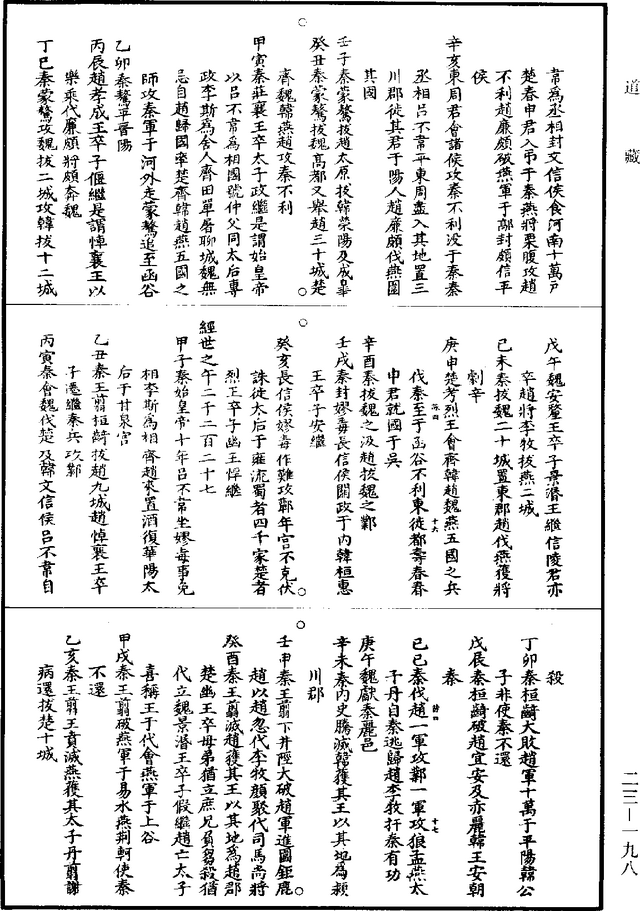 韋為丞相封文信侯食河南十萬戶
楚春申君入弔于秦燕將栗腹攻趙
不利趙廉頗破燕軍于鄗封頗信平
侯
辛亥東周君會諸侯攻秦不利沒于秦秦
丞相呂不韋平東周盡入其地置三
川郡徙其君于陽人趙廉頗伐燕圍
其國
壬子秦蒙驁拔趙太原技韓滎陽及成皐
癸丑秦蒙驁拔魏高都又舉趙三十城楚
齊魏韓燕趙攻秦不利
甲寅秦莊襄王卒太子政繼是謂始皇帝
以呂不韋為相國號仲父同太后專
政李斯為舍人齊田單屠聊城魏無
忌自趙歸國率楚齊韓趙燕五國之
師攻秦軍于河外走蒙驁追至函谷
乙卯秦驁平晉陽
丙辰趙孝成王卒子偃繼是謂悼襄王以
樂乘代廉頗將頗奔魏
丁巳秦蒙驁攻魏拔二城攻韓拔十二城
戊午魏安釐王卒子景湣王繼信陵君亦
卒趙將李牧拔燕二城
己未秦拔魏二十城置東郡趙伐燕獲將
劇辛
庚申楚考烈王會齊韓趙魏燕五國之兵
伐秦至于函谷不利東徙都壽春春
申君就國于吳
辛酉秦拔魏之汲趙拔魏之鄴
壬戌秦封嫪毐長信侯關政于內韓桓惠
王卒子安繼
癸亥長信侯嫪毐作難攻鄿年宮不克伏
誅徙太后于雍流蜀者四千家楚考
烈王卒子幽王悍繼
經世之午二千二百二十七
甲子秦始皇帝十年呂不韋坐嫪毐事免
相李斯為相齊趙來置酒復華陽太
后于甘泉宮
乙丑秦王翦桓齮拔趙九城趙悼襄王卒
子遷繼秦兵攻鄴
丙寅秦會魏伐楚及韓文信侯呂不韋自
殺
丁卯秦桓齮大敗趙軍十萬于平陽韓公
子非使秦不還
戊辰秦桓齮破趙宜安及赤麗韓王安朝
秦
己巳秦伐趙一軍攻鄴一軍攻狼孟燕太
子丹自秦逃歸趙李牧扞秦有功
庚午魏獻秦麗邑
辛未秦內史騰滅韓獲其王以其地為潁
川郡
壬申秦王翦下井陘大破趙軍進圍鉅鹿
趙以趙忽代李牧顏聚代司馬尚將
癸酉秦王翦滅趙獲其王以其地為趙郡
楚幽王卒母弟猶立庶兄負芻殺猶
代立魏景湣王卒子假繼趙亡太子
喜稱王于代會燕軍于上谷
甲戌秦王翦破燕軍于易水燕荆軻使秦
不還
乙亥秦王翦王賁滅燕獲其太子丹翦謝
病還拔楚十城
道藏
二三—一九八